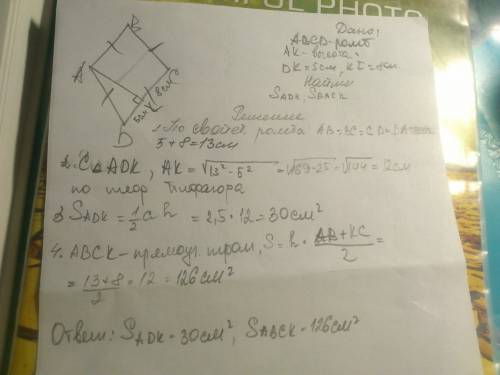 PHOTO
Дано:
ABCD-ромб
AK-высота
DK=5см, KC=8см
Найти
SADK, SABCK
B
A
C
D
K
5см
8см
Решение
1. По свойст. ромба AB=BC=CD=DA=
5+8=13см
2. С △ADK, AK=√13²-5²=√169-25=√144=12см
по теор Пифагора
3. SADK=½ah=2,5·12=30см²
4. ABCK-прямоуг. трап, S=h·AB+KC/2=
=13+8/2·12=126см²
Ответ: SADK=30см², SABCK=126см²